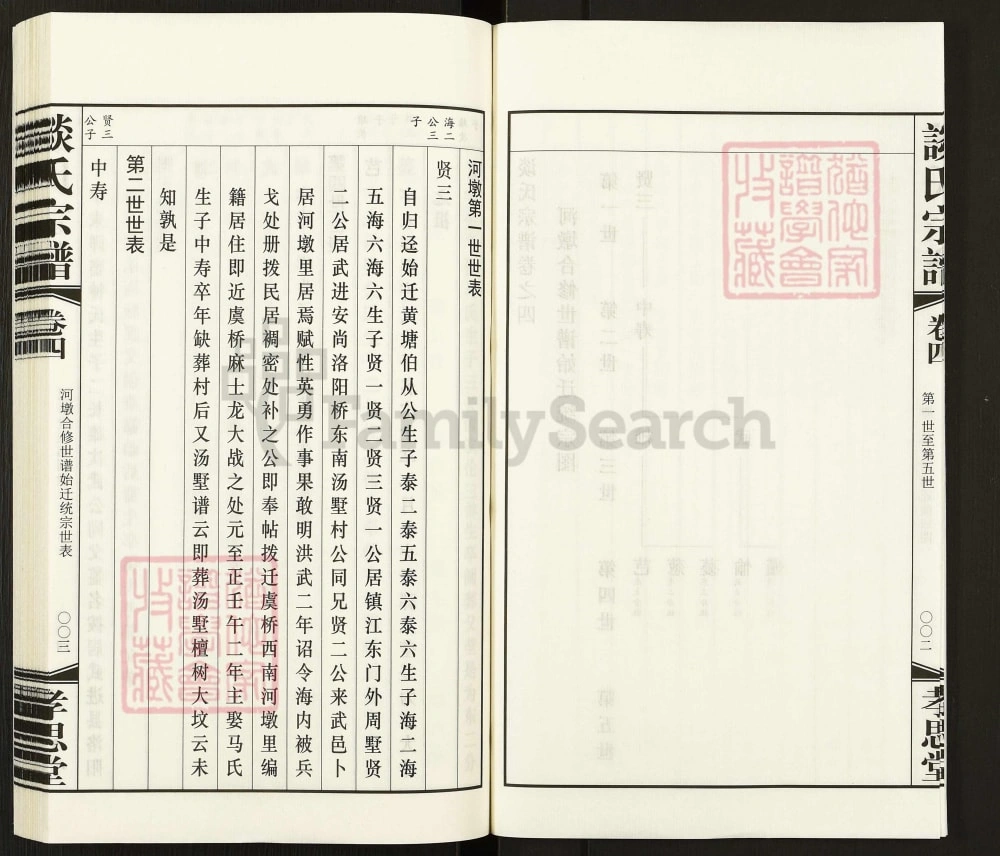 談氏宗譜
卷四
第一世至第五世
〇〇二
孝思堂
海二公三子
河墩第一世世表
贤三
自归迳始迁黄塘伯从公生子泰二泰五泰六泰六生子海二海
五海六海六生子贤一贤二贤三贤一公居镇江东门外周墅贤
二公居武进安尚洛阳桥东南汤墅村公同兄贤二公来武邑卜
居河墩里居焉赋性英勇作事果敢明洪武二年诏令海内被兵
戈处册拨民居禂密处补之公即奉帖拨迁虞桥西南河墩里编
籍居住即近虞桥麻士龙大战之处元至正壬午二年主娶马氏
生子中寿卒年缺葬村后又汤墅谱云即葬汤墅檀树大坟云未
知孰是
第二世世表
贤三公子
中寿
談氏宗譜
卷四
河墩合修世谱始迁统宗世表
〇〇三
孝思堂
FamilySearch